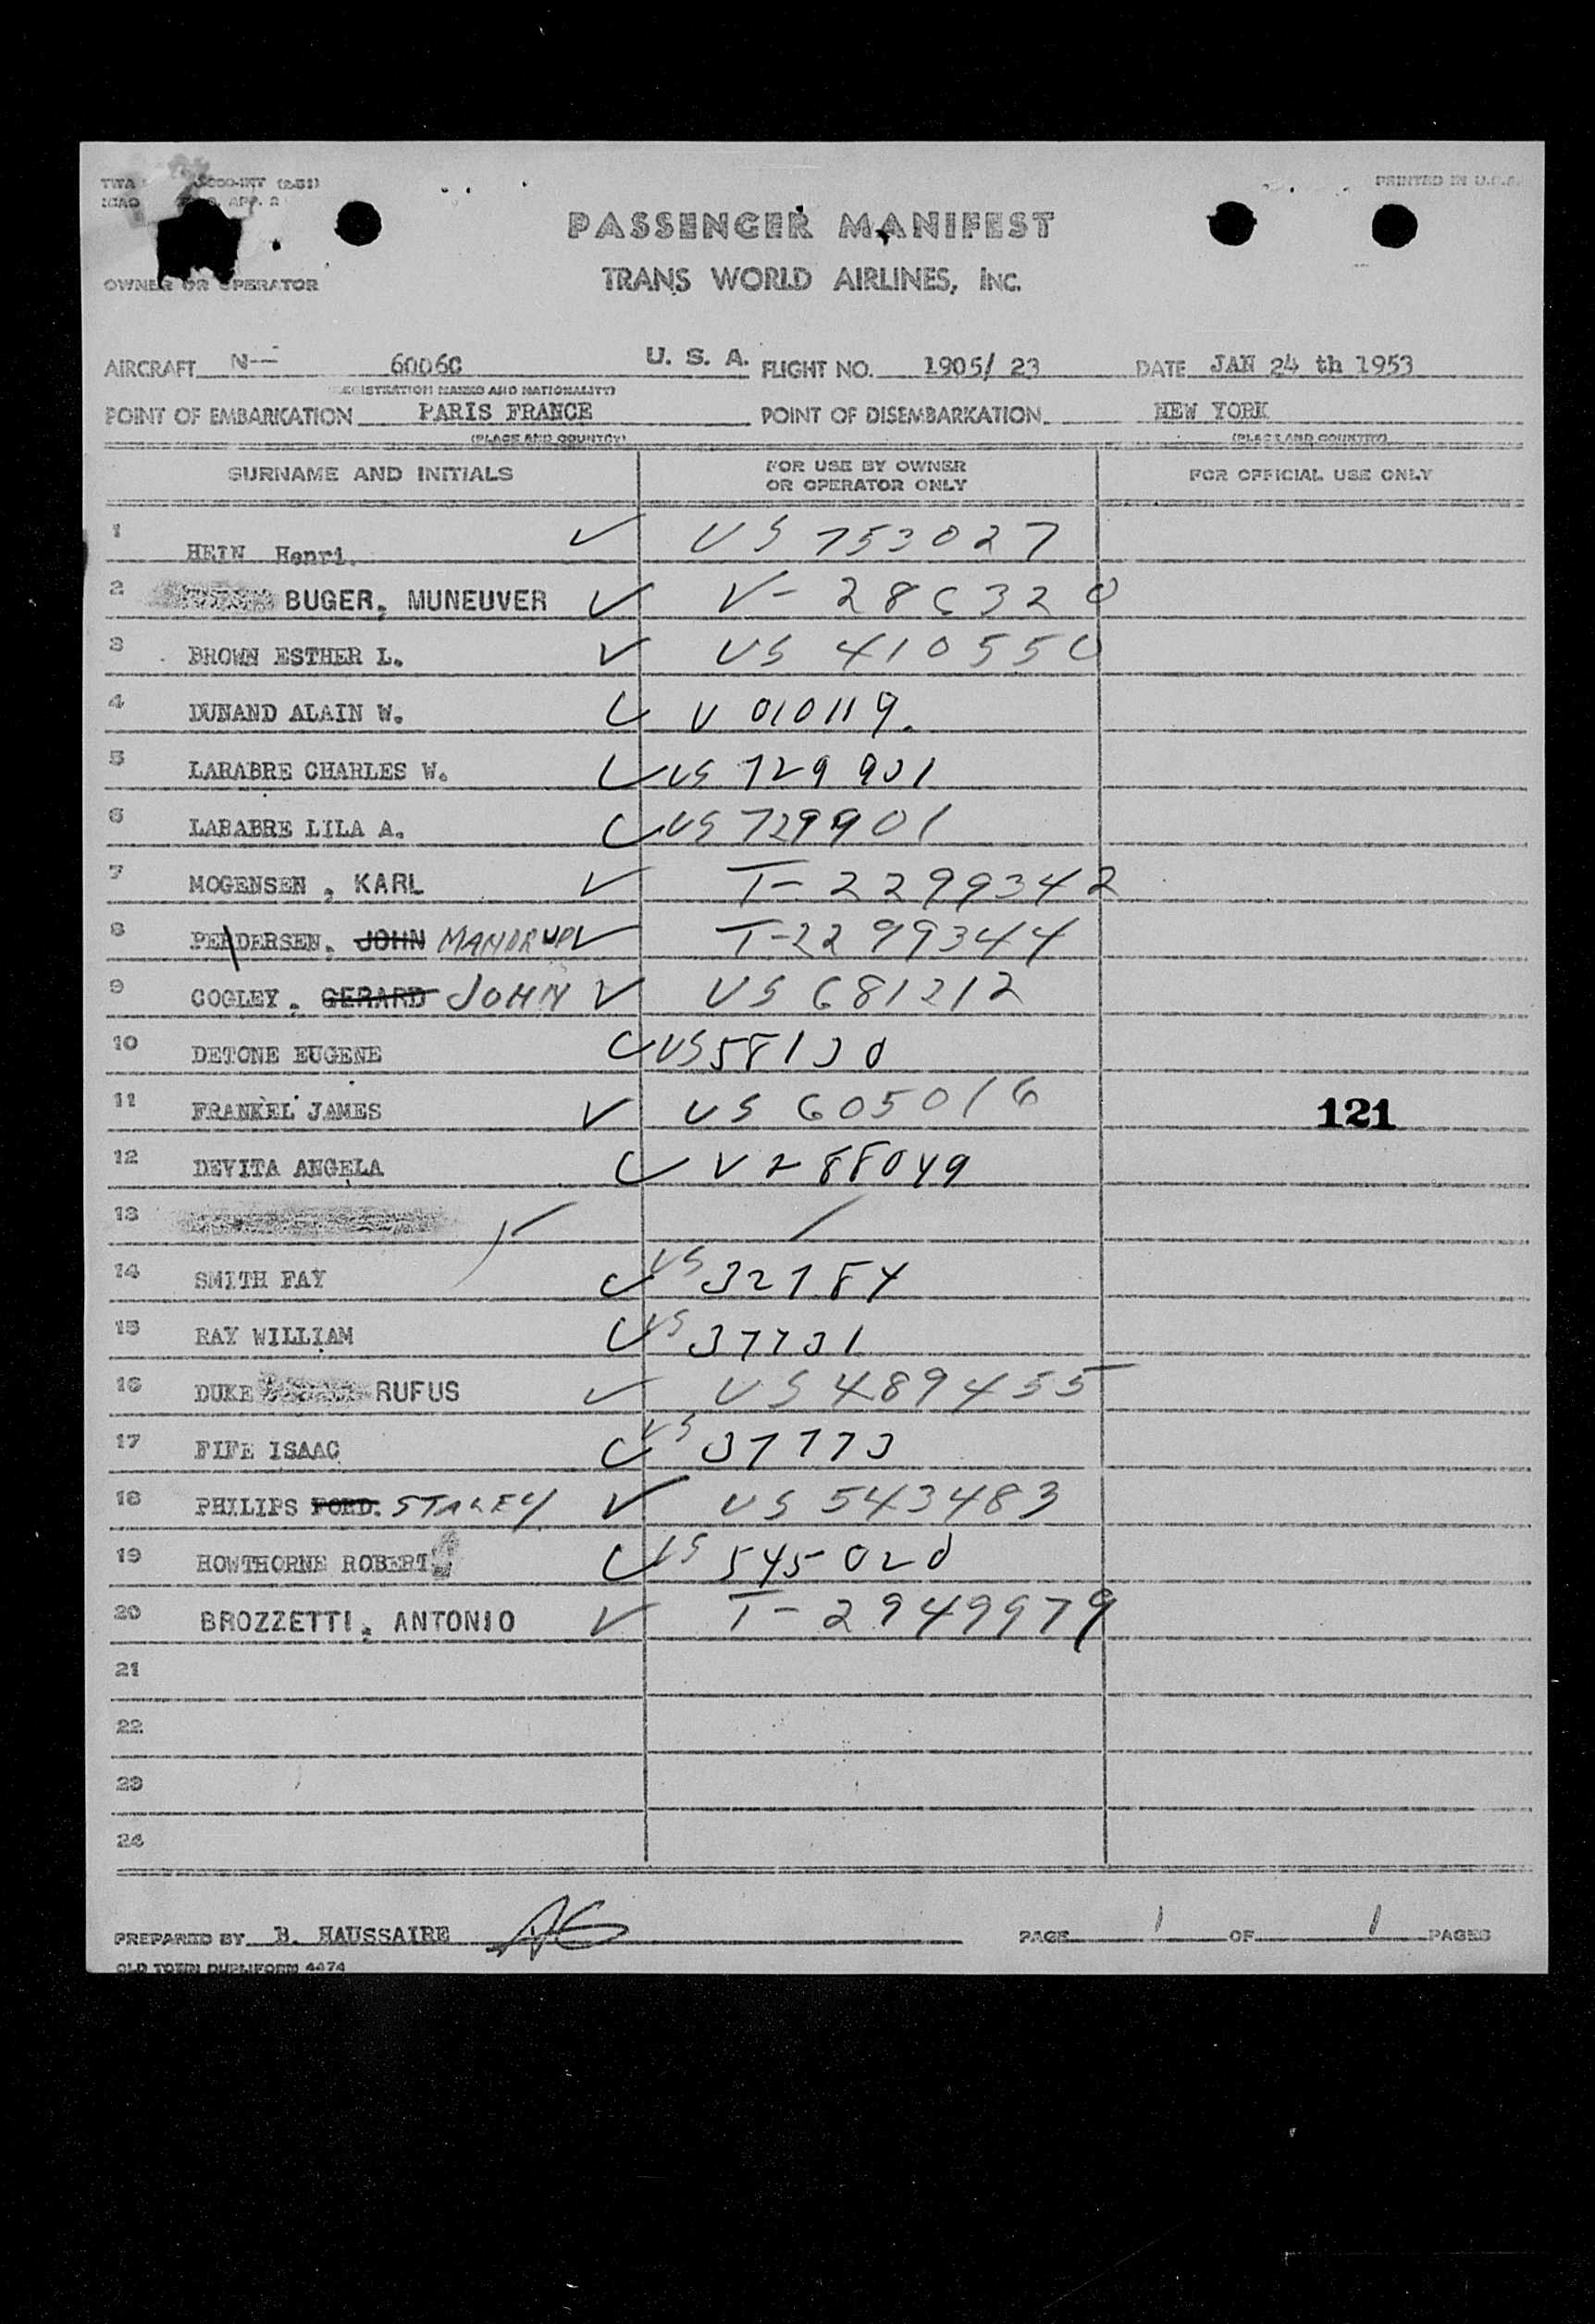 PRINTED IN U.S.A.
PASSENGER MANIFEST
TRANS WORLD AIRLINES, INC.
OWNER OR OPERATOR
AIRCRAFT N-- 6006C U. S. A. FLIGHT NO. 1905/ 23 DATE JAN 24 th 1953
(REGISTRATION MARKS AND NATIONALITY)
POINT OF EMBARKATION PARIS FRANCE POINT OF DISEMBARKATION NEW YORK
(PLACE AND COUNTRY) (PLACE AND COUNTRY)
SURNAME AND INITIALS FOR USE BY OWNER OR OPERATOR ONLY FOR OFFICIAL USE ONLY
1 HEIN Henri. ✓ US 753027
2 BUGER, MUNEUVER ✓ V- 286320
3 BROWN ESTHER L. ✓ US 410550
4 DUNAND ALAIN W. ✓ V 010119.
5 LARABRE CHARLES W. ✓ US 729901
6 LARABRE LILA A. ✓ US 729901
7 MOGENSEN, KARL ✓ T- 2299342
8 PEDERSEN, JOHN MANDRUP ✓ T-2299344
9 COGLEY, GERARD JOHN ✓ US 681212
10 DETONE EUGENE ✓ US 58130
11 FRANKEL JAMES ✓ US 605016 121
12 DEVITA ANGELA ✓ V 288049
13
14 SMITH FAY ✓ US 32784
15 RAY WILLIAM ✓ US 37731
16 DUKE RUFUS ✓ US 489455
17 FIFE ISAAC ✓ US 37773
18 PHILIPS FORD. STALEY ✓ US 543483
19 HOWTHORNE ROBERT ✓ US 545020
20 BROZZETTI, ANTONIO ✓ T- 2949979
21
22
23
24
PREPARED BY B. HAUSSAIRE PAGE 1 OF 1 PAGES
OLD TOWN DUPLIFORM 4474